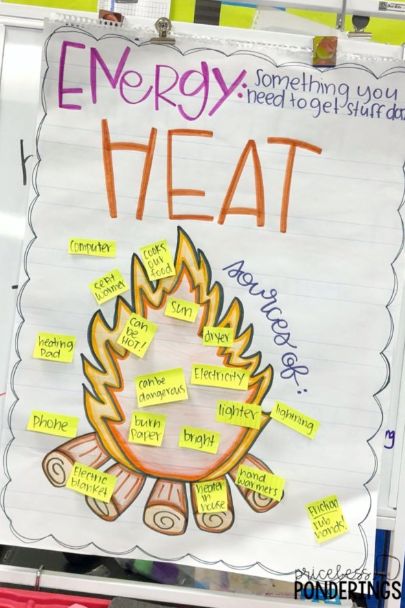 ENERGY: something you
need to get stuff
HEAT
computer
cooks
our
food
seat
warmer
sources of:
sun
can
be
HOT!
dryer
heating
pad
Electricity
can be
dangerous
lighter
lightning
phone
burn
paper
bright
Electric
blanket
heater
in
house
hand
warmers
Friction
rub
hands
pricebess
PONDERINGS